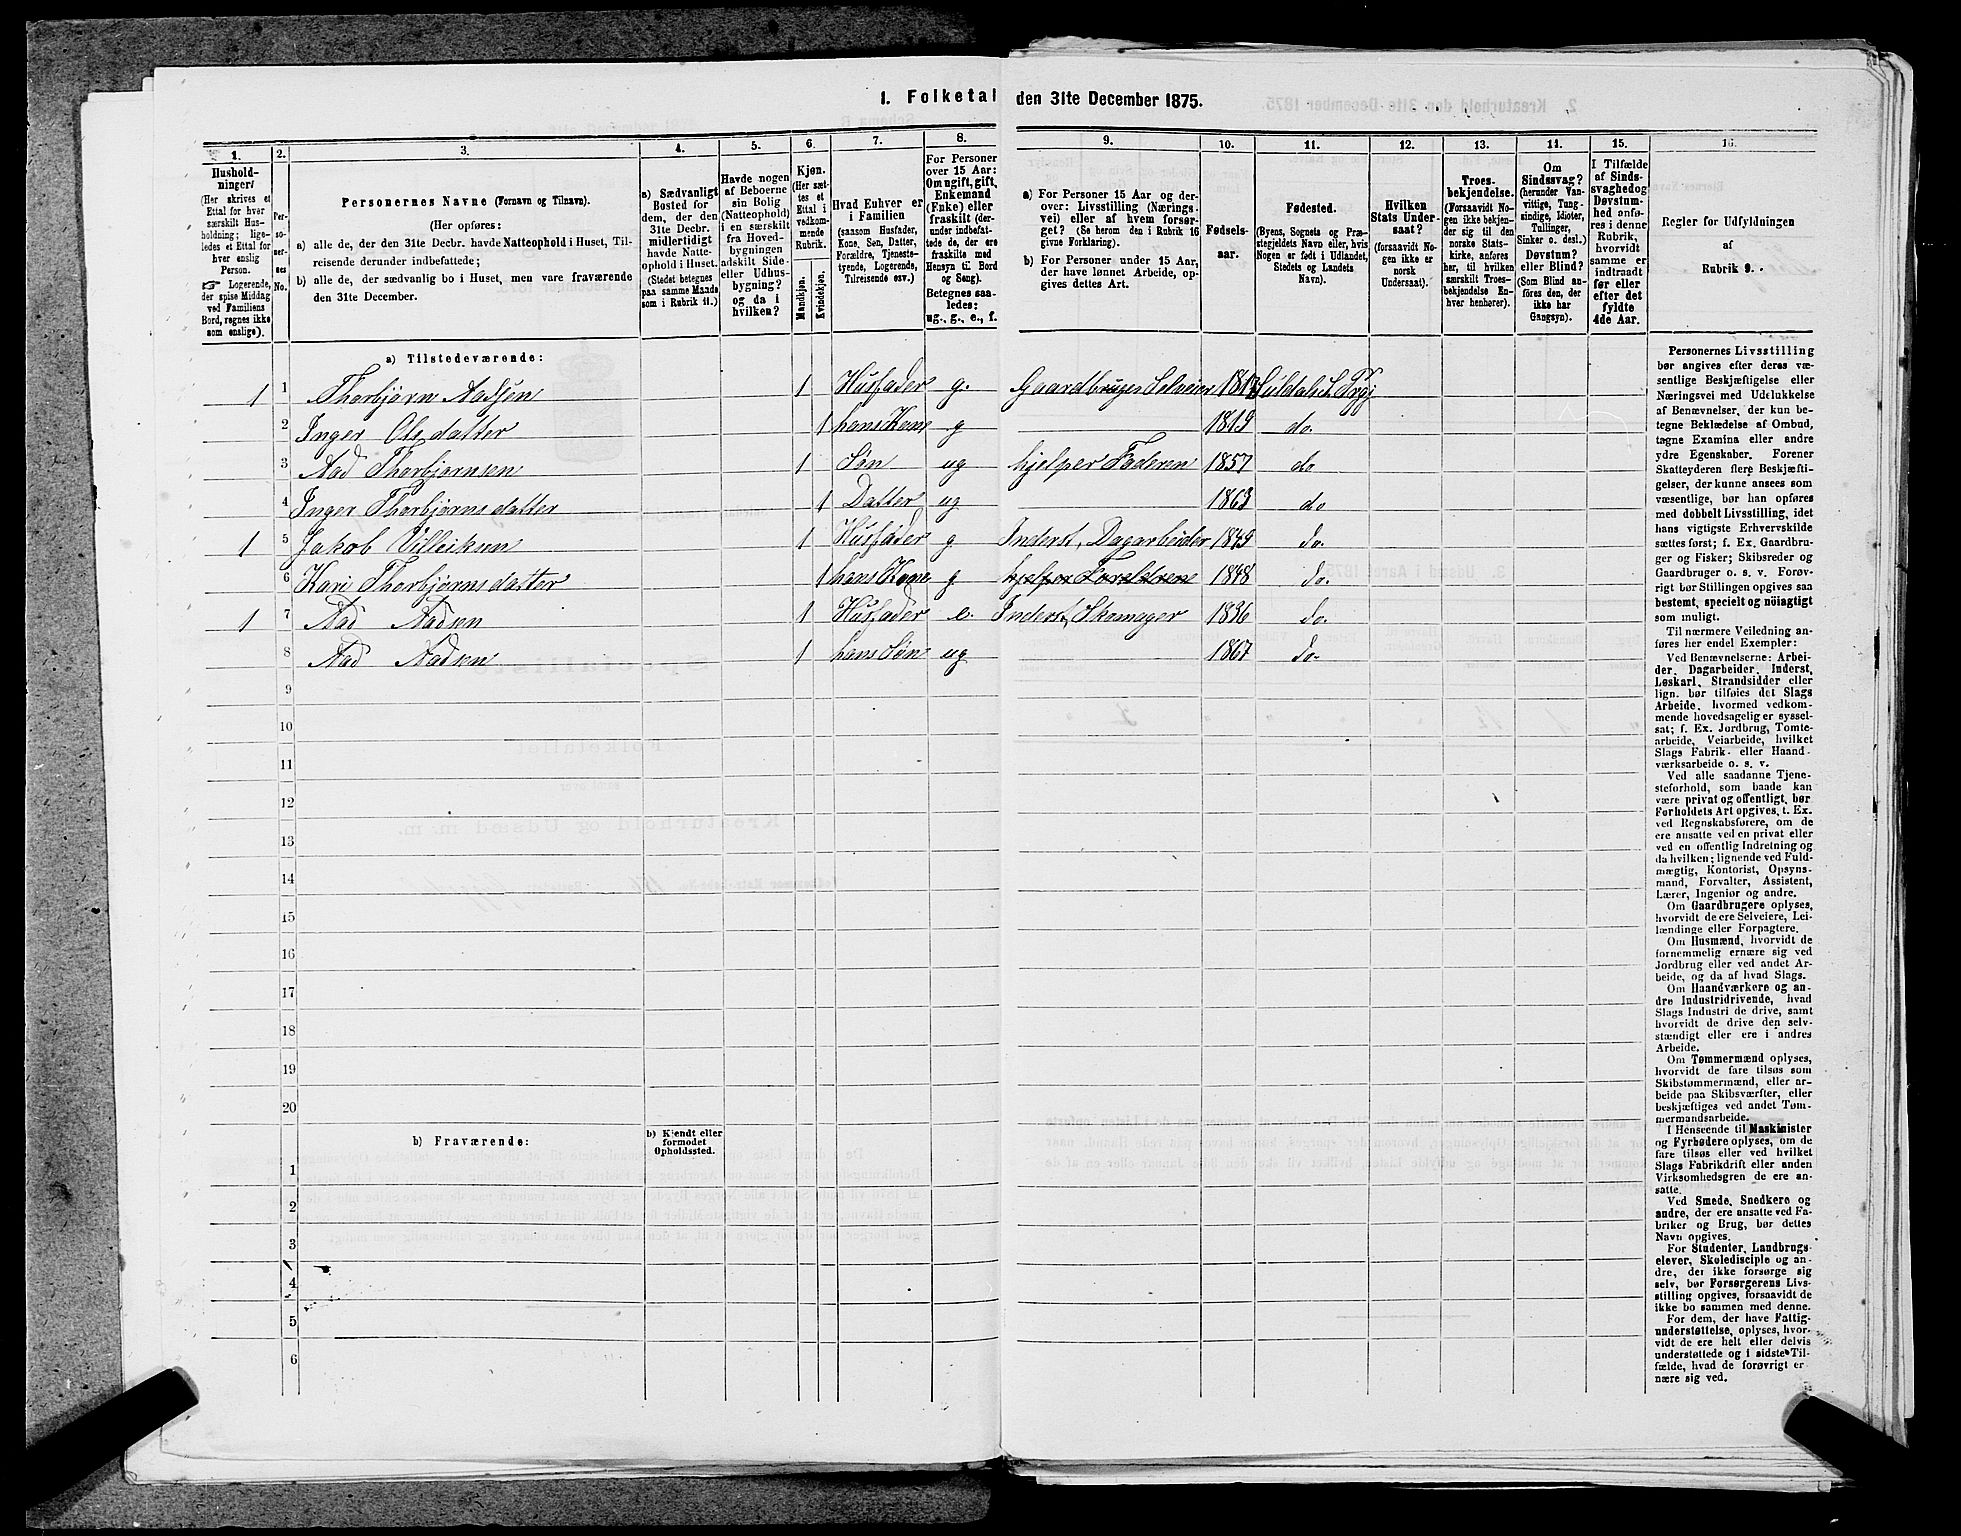 1. Folketal den 31te December 1875.
1.
Husholdninger/
(Her skrives et
Ettal for hver
særskilt Husholdning; ligeledes et Ettal for
hver enslig
Person.
☞ Logerende,
der spise Middag
ved Familiens
Bord, regnes ikke
som enslige).
2.
Personernes
No.
3.
Personernes Navne (Fornavn og Tilnavn).
(Her opføres:
a) alle de, der den 31te Decbr. havde Natteophold i Huset, Tilreisende derunder indbefattede;
b) alle de, der sædvanlig bo i Huset, men vare fraværende
den 31te December.
4.
a) Sædvanligt
Bosted for
dem, der den
31te Decbr.
midlertidigt
havde Natteophold i Huset.
(Stedet betegnes
paa samme Maade
som i Rubrik 11.)
5.
Havde nogen
af Beboerne
sin Bolig
(Natteophold)
i en særskilt
fra Hovedbygningen
adskilt Side-
eller Udhusbygning?
og da i
hvilken?
6.
Kjøn.
(Her sættes et
Ettal i
vedkommende
Rubrik.
Mandkjøn.
Kvindekjøn.
7.
Hvad Enhver er
i Familien
(saasom Husfader,
Kone, Søn, Datter,
Forældre, Tjenestetyende, Logerende,
Tilreisende osv.)
8.
For Personer
over 15 Aar:
Om ugift, gift,
Enkemand
(Enke) eller
fraskilt (derunder indbefattede de, der ere
fraskilte med
Hensyn til Bord
og Seng).
Betegnes saaledes:
ug., g., e., f.
9.
a) For Personer 15 Aar og derover: Livsstilling (Næringsvei) eller af hvem forsørget? (Se herom den i Rubrik 16
givne Forklaring).
b) For Personer under 15 Aar,
der have lønnet Arbeide, opgives dettes Art.
10.
Fødselsaar.
11.
Fødested.
(Byens, Sognets og Præstegjeldets Navn eller, hvis
Nogen er født i Udlandet,
Stedets og Landets
Navn).
12.
Hvilken
Stats Undersaat?
(forsaavidt Nogen ikke er
norsk
Undersaat).
13.
Troesbekjendelse.
(Forsaavidt Nogen ikke bekjender sig til den
norske Statskirke, anføres
her, til hvilken
særskilt Troesbekjendelse Enhver henhører).
14.
Om
Sindssvag?
(herunder Vanvittige, Tungsindige, Idioter,
Sinker o. desl.)
Døvstum?
eller Blind?
(Som Blind anføres den, der
ikke har
Gangsyn).
15.
I Tilfælde
af Sindssvaghed og
Døvstumhed anføres i denne
Rubrik,
hvorvidt
samme er
indtraadt
før eller
efter det
fyldte
4de Aar.
16.
Regler for Udfyldningen
af
Rubrik 9.
a) Tilstedeværende:
1 1 Thorbjørn Aadsen 1 Husfader g. Gaardbruger Selveier 1817 Suldals S. Prgj
2 Inger Olsdatter 1 hans Kone g 1819 do.
3 Aad Thorbjørnsen 1 Søn ug hjelper Faderen 1857 do
4 Inger Thorbjørnsdatter 1 Datter ug 1863 do
1 5 Jakob Villeiksen 1 Husfader g Inderst, Dagarbeider 1849 do.
6 Kari Thorbjørnsdatter 1 hans Kone g hjelper Forældrene 1848 do.
1 7 Aad Aadsen 1 Husfader e. Inderst, Skomager 1836 do.
8 Aad Aadsen 1 hans Søn ug 1867 do.
9
10
11
12
13
14
15
16
17
18
19
20
b) Fraværende:
b) Kjendt eller
formodet
Opholdssted.
1
2
3
4
5
6
Personernes Livsstilling
bør angives efter deres væsentlige Beskjæftigelse eller
Næringsvei med Udelukkelse
af Benævnelser, der kun betegne Beklædelse af Ombud,
tagne Examina eller andre
ydre Egenskaber. Forener
Skatteyderen flere Beskjæftigelser, der kunne ansees som
væsentlige, bør han opføres
med dobbelt Livsstilling, idet
hans vigtigste Erhvervskilde
sættes først; f. Ex. Gaardbruger og Fisker; Skibsreder og
Gaardbruger o. s. v. Forøvrigt bør Stillingen opgives saa
bestemt, specielt og nöiagtigt
som muligt.
Til nærmere Veiledning anføres her endel Exempler:
Ved Benævnelserne: Arbeider, Dagarbeider, Inderst,
Løskarl, Strandsidder eller
lign. bør tilføies det Slags
Arbeide, hvormed vedkommende hovedsagelig er sysselsat; f. Ex. Jordbrug, Tomtearbeide, Veiarbeide, hvilket
Slags Fabrik- eller Haandværksarbeide o. s. v.
Ved alle saadanne Tjenesteforhold, som baade kan
være privat og offentligt, bør
Forholdets Art opgives, t. Ex.
ved Regnskabsførere, om de
ere ansatte ved en privat eller
ved en offentlig Indretning og
da hvilken; lignende ved Fuldmægtig, Kontorist, Opsynsmand, Forvalter, Assistent,
Lærer, Ingeniør og andre.
Om Gaardbrugere oplyses,
hvorvidt de ere Selveiere, Leilændinge eller Forpagtere.
Om Husmænd, hvorvidt de
fornemmelig ernære sig ved
Jordbrug eller ved andet Arbeide, og da af hvad Slags.
Om Haandværkere og andre Industridrivende, hvad
Slags Industri de drive, samt
hvorvidt de drive den selvstændigt eller ere i andres
Arbeide.
Om Tømmermænd oplyses,
hvorvidt de fare tilsøs som
Skibstømmermænd, eller arbeide paa Skibsværfter, eller
beskjæftiges ved andet Tømmermandsarbeide.
I Henseende til Maskinister
og Fyrbødere oplyses, om de
fare tilsøs eller ved hvilket
Slags Fabrikdrift eller anden
Virksomhedsgren de ere ansatte.
Ved Smede, Snedkere og
andre, der ere ansatte ved Fabriker og Brug, bør dettes
Navn opgives.
For Studenter, Landbrugselever, Skoledisciple og andre, der ikke forsørge sig
selv, bør Forsørgerens Livsstilling opgives, forsaavidt de
ikke bo sammen med denne.
For dem, der have Fattigunderstøttelse, oplyses, hvorvidt de ere helt eller delvis
understøttede og i sidste Tilfælde, hvad de forøvrigt ernære sig ved.